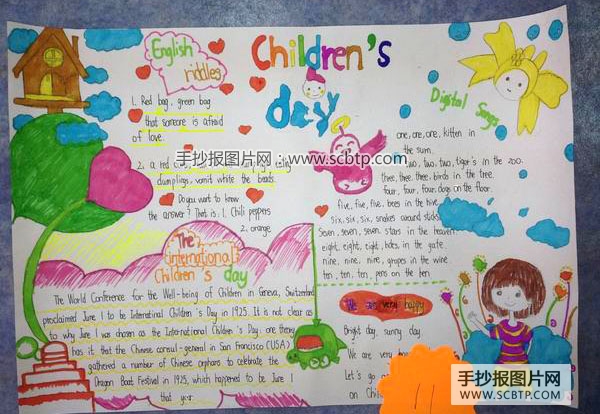 Children's day
English riddles
1. Red bag, green bag
that someone is afraid
of love.
2. a red
dumplings, vomit white the beads.
Do you want to know
the answer? That is 1. Chili peppers
2. orange.
手抄报图片网:www.scbtp.com
Digital Songs
one, one, one, kitten in
the sun.
two, two, tiger's in the zoo.
three, three, three, birds in the tree.
four, four, four, dog on the floor.
five, five, five, bees in the hive.
six, six, six, snakes around sticks
seven, seven, seven, stars in the heaven.
eight, eight, eight, in the gate.
nine, nine, nine, grapes in the wine.
ten, ten, ten, pens on the ben
The
international
Children's day
The World Conference for the Well-being of Children in Geneva, Switzerland
proclaimed June 1 to be International Children's Day in 1925. It is not clear as
to why June 1 was chosen as the International Children's Day: one theory
has it that the Chinese consul-general in San Francisco (USA)
gathered a number of Chinese orphans to celebrate the
Dragon Boat Festival in 1925, which happened to be June 1
that year.
We are very happy
Bright day, sunny day.
We are very
Let's go
on Chil
手抄报图片网
WWW.SCBTP.COM